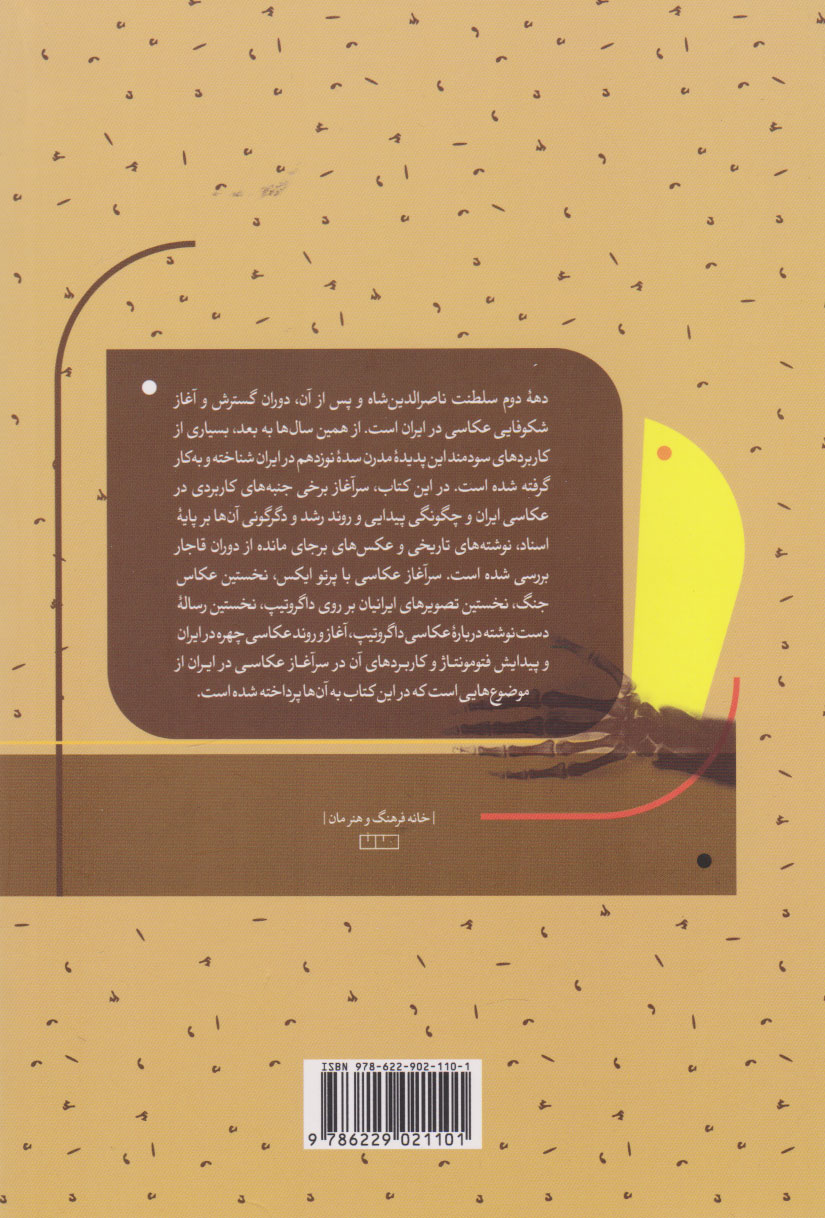 دههٔ دوم سلطنت ناصرالدین‌شاه و پس از آن، دوران گسترش و آغاز
شکوفایی عکاسی در ایران است. از همین سال‌ها به بعد، بسیاری از
کاربردهای سودمند این پدیدهٔ مدرن سدهٔ نوزدهم در ایران شناخته و به‌کار
گرفته شده است. در این کتاب، سرآغاز برخی جنبه‌های کاربردی در
عکاسی ایران و چگونگی پیدایی و روند رشد و دگرگونی آن‌ها بر پایهٔ
اسناد، نوشته‌های تاریخی و عکس‌های برجای مانده از دوران قاجار
بررسی شده است. سرآغاز عکاسی با پرتو ایکس، نخستین عکاس
جنگ، نخستین تصویرهای ایرانیان بر روی داگروتیپ، نخستین رسالهٔ
دست‌نوشته دربارهٔ عکاسی داگروتیپ، آغاز و روند عکاسی چهره در ایران
و پیدایش فتومونتاژ و کاربردهای آن در سرآغاز عکاسی در ایران از
موضوع‌هایی است که در این کتاب به آن‌ها پرداخته شده است.
| خانه فرهنگ و هنر مان |
ISBN 978-622-902-110-1
9 786229 021101